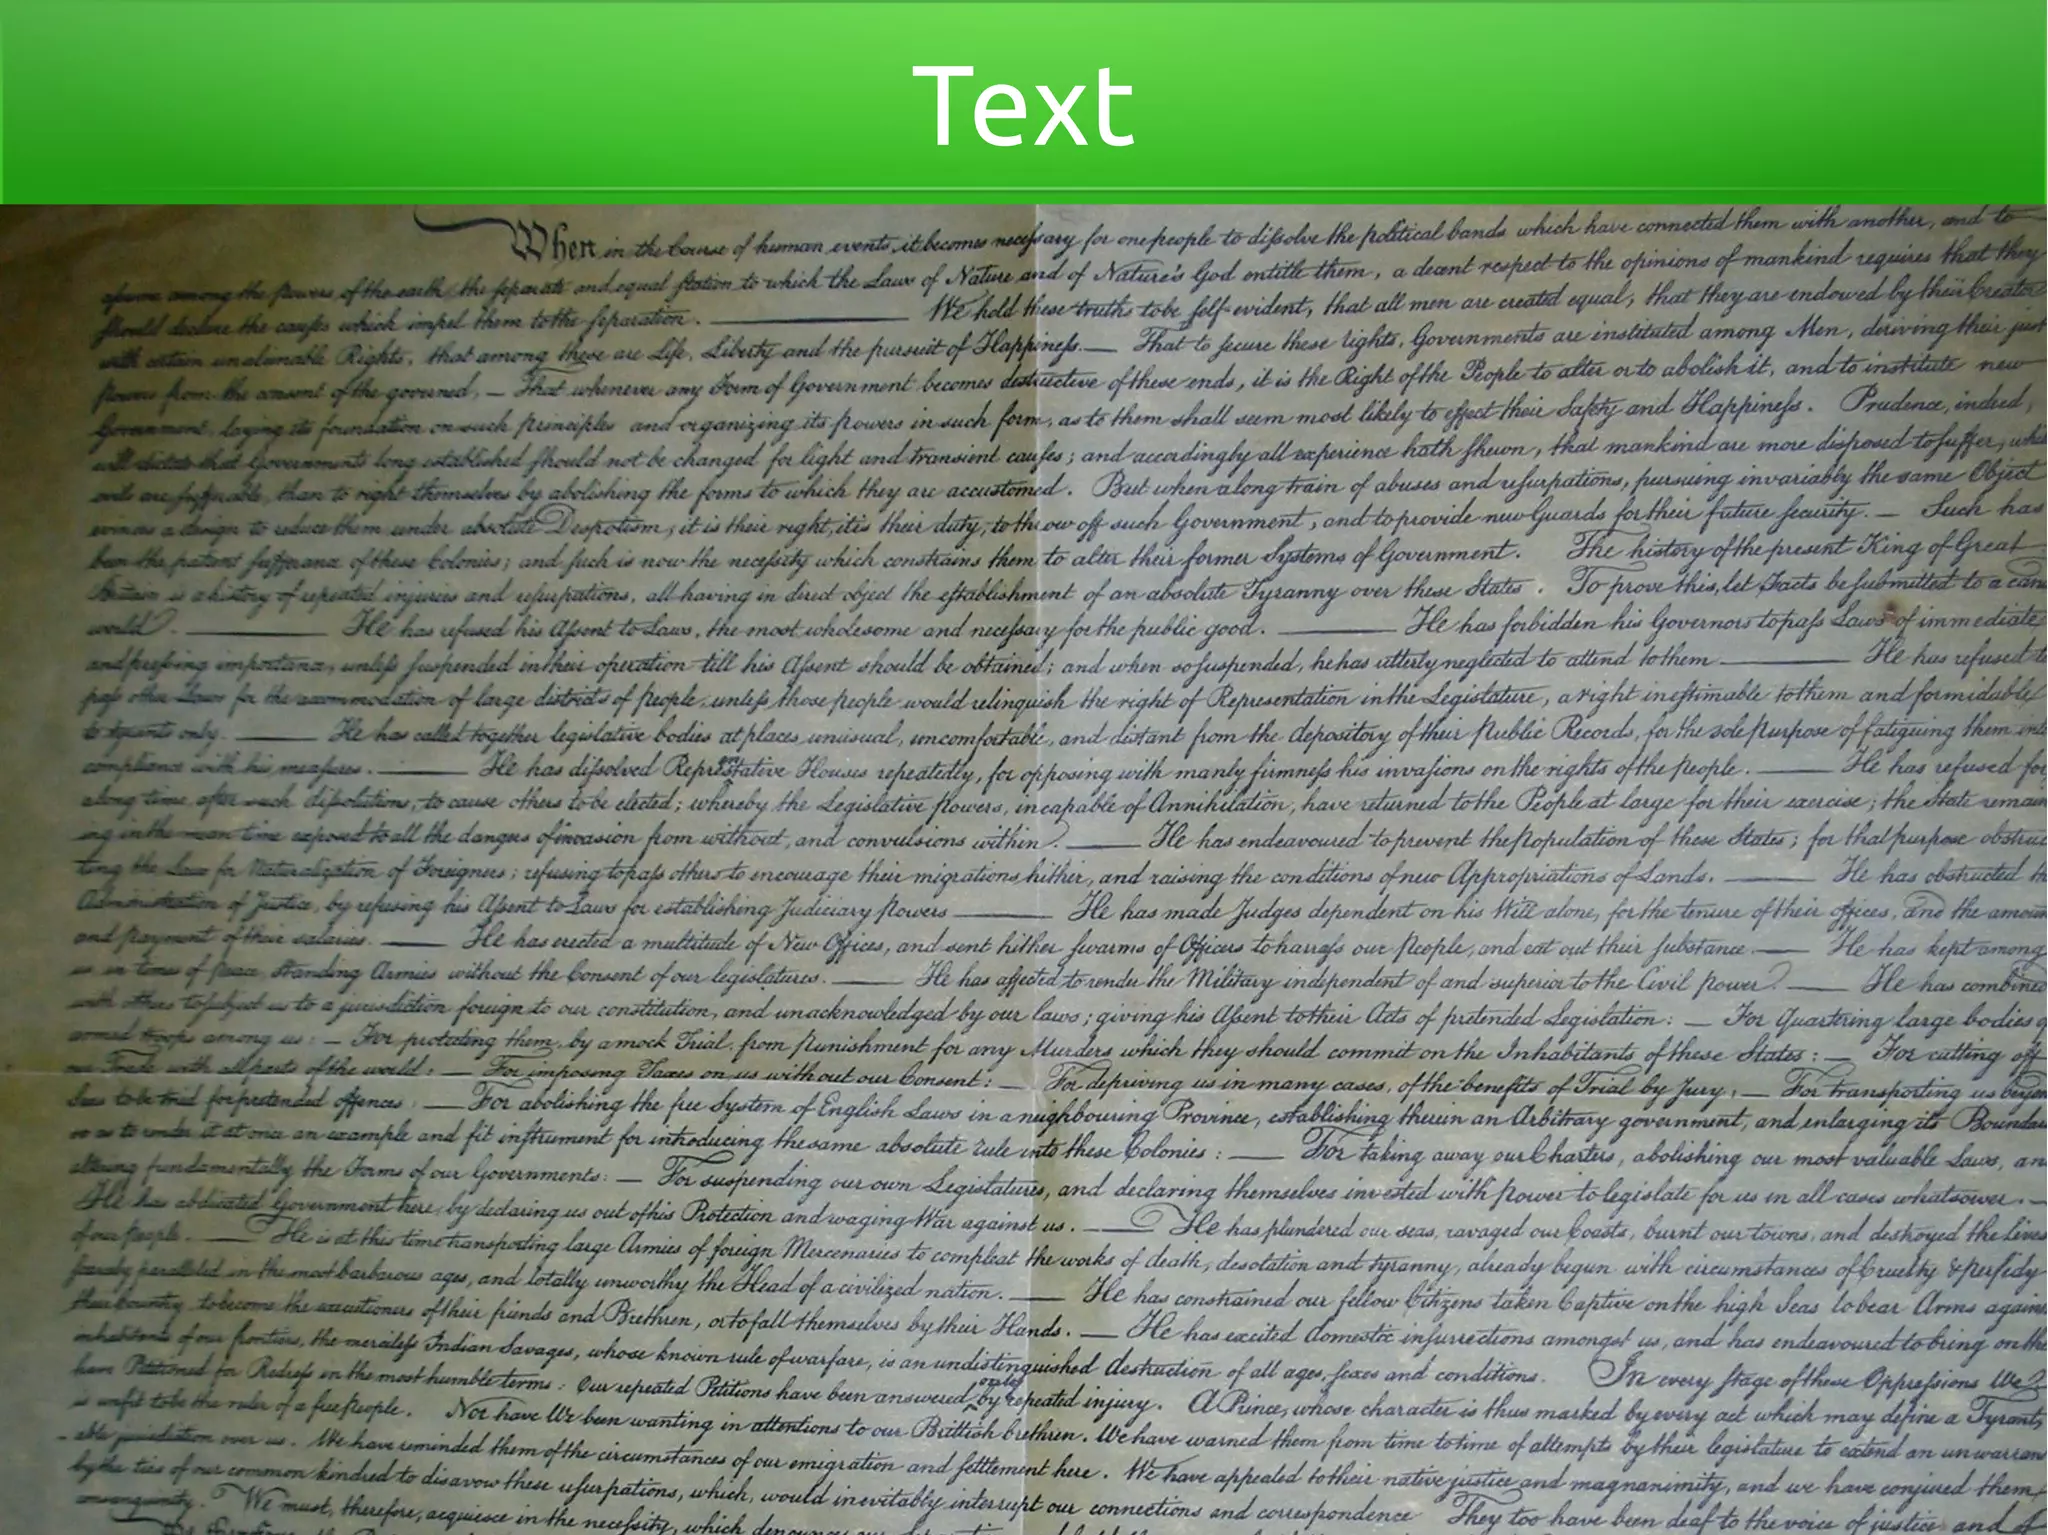 Text
When in the Course of human events, it becomes necessary for one people to dissolve the political bands which have connected them with another, and to
assume among the powers of the earth, the separate and equal station to which the Laws of Nature and of Nature's God entitle them, a decent respect to the opinions of mankind requires that they
should declare the causes which impel them to the separation. We hold these truths to be self-evident, that all men are created equal, that they are endowed by their Creator
with certain unalienable Rights, that among these are Life, Liberty and the pursuit of Happiness.— That to secure these rights, Governments are instituted among Men, deriving their just
powers from the consent of the governed, — That whenever any Form of Government becomes destructive of these ends, it is the Right of the People to alter or to abolish it, and to institute new
Government, laying its foundation on such principles and organizing its powers in such form, as to them shall seem most likely to effect their Safety and Happiness. Prudence, indeed,
will dictate that Governments long established should not be changed for light and transient causes; and accordingly all experience hath shewn, that mankind are more disposed to suffer, while
evils are sufferable, than to right themselves by abolishing the forms to which they are accustomed. But when a long train of abuses and usurpations, pursuing invariably the same Object
evinces a design to reduce them under absolute Despotism, it is their right, it is their duty, to throw off such Government, and to provide new Guards for their future security.— Such has
been the patient sufferance of these Colonies; and such is now the necessity which constrains them to alter their former Systems of Government. The history of the present King of Great
Britain is a history of repeated injuries and usurpations, all having in direct object the establishment of an absolute Tyranny over these States. To prove this, let Facts be submitted to a can
world. He has refused his Assent to Laws, the most wholesome and necessary for the public good. He has forbidden his Governors to pass Laws of immediate
and pressing importance, unless suspended in their operation till his Assent should be obtained; and when so suspended, he has utterly neglected to attend to them He has refused to
pass other Laws for the accommodation of large districts of people, unless those people would relinquish the right of Representation in the Legislature, a right inestimable to them and formidable
to tyrants only. He has called together legislative bodies at places unusual, uncomfortable, and distant from the depository of their Public Records, for the sole purpose of fatiguing them into
compliance with his measures. He has dissolved Representative Houses repeatedly, for opposing with manly firmness his invasions on the rights of the people. He has refused for
a long time, after such dissolutions, to cause others to be elected; whereby the Legislative powers, incapable of Annihilation, have returned to the People at large for their exercise; the State remain
ing in the mean time exposed to all the dangers of invasion from without, and convulsions within. He has endeavoured to prevent the population of these States; for that purpose obstruc
ting the Laws for Naturalization of Foreigners; refusing to pass others to encourage their migrations hither, and raising the conditions of new Appropriations of Lands. He has obstructed the
Administration of Justice, by refusing his Assent to Laws for establishing Judiciary powers He has made Judges dependent on his Will alone, for the tenure of their offices, and the amount
and payment of their salaries. He has erected a multitude of New Offices, and sent hither swarms of Officers to harrass our people, and eat out their substance. He has kept among
us in times of peace, Standing Armies without the Consent of our legislatures. He has affected to render the Military independent of and superior to the Civil power. He has combined
with others to subject us to a jurisdiction foreign to our constitution, and unacknowledged by our laws; giving his Assent to their Acts of pretended Legislation: — For Quartering large bodies of
armed troops among us: — For protecting them, by a mock Trial, from punishment for any Murders which they should commit on the Inhabitants of these States: — For cutting off
our Trade with all parts of the world: — For imposing Taxes on us without our Consent: — For depriving us in many cases, of the benefits of Trial by Jury: — For transporting us beyond
Seas to be tried for pretended offences: — For abolishing the free System of English Laws in a neighbouring Province, establishing therein an Arbitrary government, and enlarging its Boundar
so as to render it at once an example and fit instrument for introducing the same absolute rule into these Colonies: — For taking away our Charters, abolishing our most valuable Laws, and
altering fundamentally the Forms of our Governments: — For suspending our own Legislatures, and declaring themselves invested with power to legislate for us in all cases whatsoever. —
He has abdicated Government here, by declaring us out of his Protection and waging War against us. He has plundered our seas, ravaged our Coasts, burnt our towns, and destroyed the lives
of our people. He is at this time transporting large Armies of foreign Mercenaries to compleat the works of death, desolation and tyranny, already begun with circumstances of Cruelty & perfidy
scarcely paralleled in the most barbarous ages, and totally unworthy the Head of a civilized nation. He has constrained our fellow Citizens taken Captive on the high Seas to bear Arms against
their Country, to become the executioners of their friends and Brethren, or to fall themselves by their Hands. — He has excited domestic insurrections amongst us, and has endeavoured to bring on the
inhabitants of our frontiers, the merciless Indian Savages, whose known rule of warfare, is an undistinguished destruction of all ages, sexes and conditions. In every stage of these Oppressions We
have Petitioned for Redress in the most humble terms: Our repeated Petitions have been answered only by repeated injury. A Prince, whose character is thus marked by every act which may define a Tyrant,
is unfit to be the ruler of a free people. Nor have We been wanting in attentions to our Brittish brethren. We have warned them from time to time of attempts by their legislature to extend an unwarrant
able jurisdiction over us. We have reminded them of the circumstances of our emigration and settlement here. We have appealed to their native justice and magnanimity, and we have conjured them
by the ties of our common kindred to disavow these usurpations, which, would inevitably interrupt our connections and correspondence They too have been deaf to the voice of justice and of
consanguinity. We must, therefore, acquiesce in the necessity, which denounces our